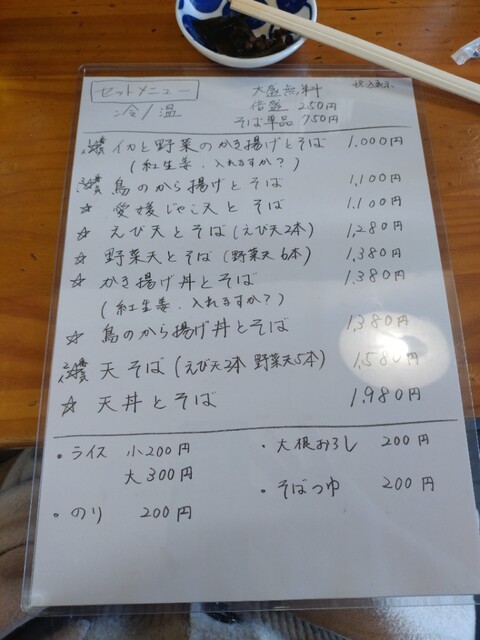 セットメニュー
冷/温
大盛無料
倍盛 250円
そば単品 750円
税込表示
イカと野菜のかき揚げとそば 1,000円
(紅生姜、入れますか?)
鳥のから揚げとそば 1,100円
☆ 愛媛じゃこ天とそば 1,100円
☆ えび天とそば(えび天2本) 1,280円
☆ 野菜天とそば(野菜天6本) 1,380円
☆ かき揚げ丼とそば 1,380円
(紅生姜、入れますか?)
☆ 鳥のから揚げ丼とそば 1,380円
天そば(えび天2本 野菜天5本) 1,580円
☆ 天丼とそば 1,980円
・ライス 小200円
大300円
・のり 200円
・大根おろし 200円
・そばつゆ 200円